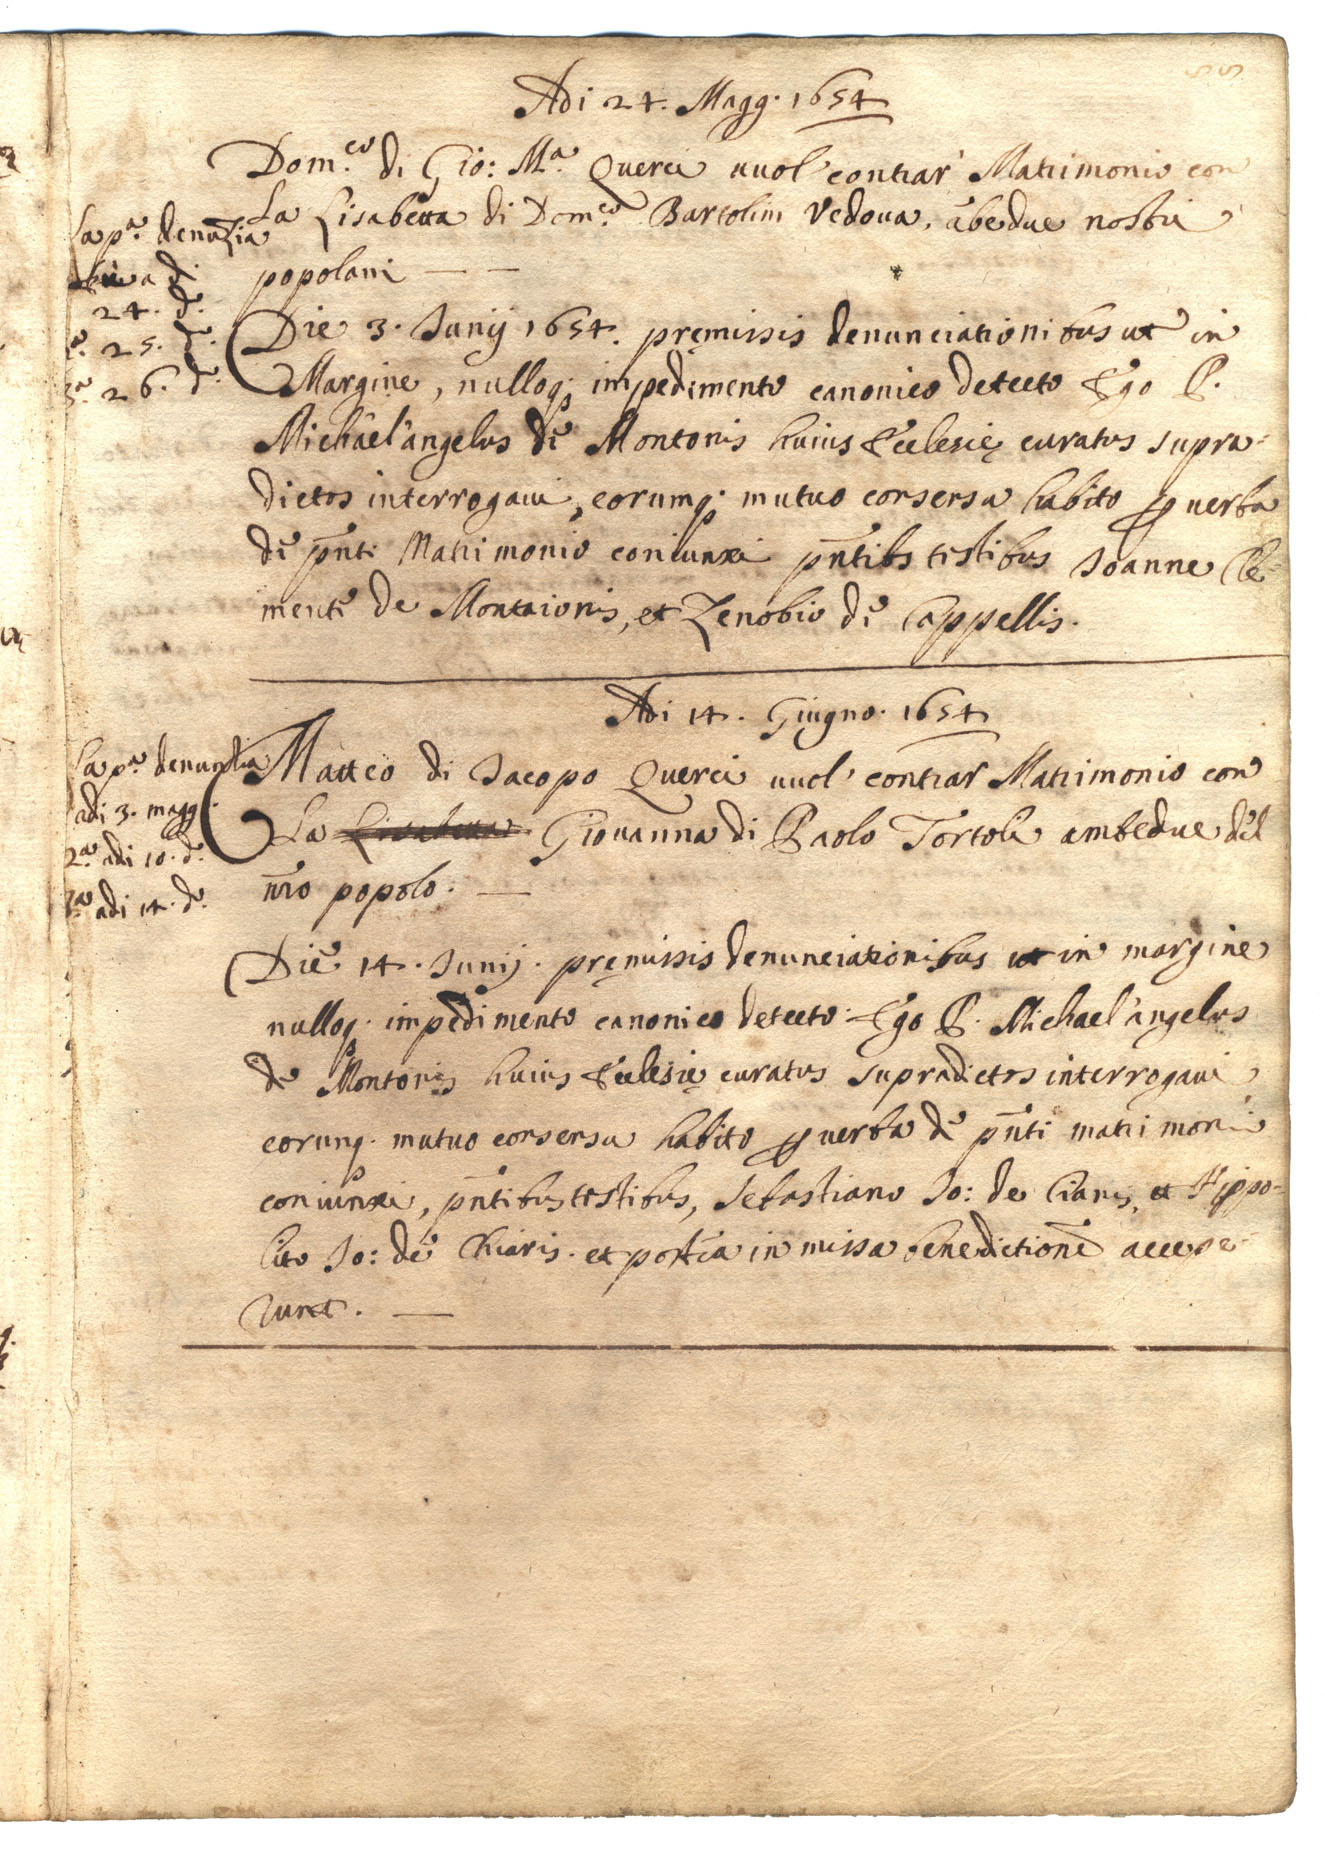 55
Adi 24. Magg. 1654
Dom.co di Gio: M.a Querci vuol contrar Matrimonio con
La Lisabetta di Dom.co Bartolini Vedova, ābedue nostri
popolani — —
La p.a denūzia
24. d.o
25. d.o
3.a 26. d.o
Die 3. Junij 1654. pręmissis denunciationibus ut in
Margine, nulloq; impedimento canonico detecto Ego P.
Michael'angelus de Montonis huius Ecclesię curatus supra-
dictos interrogavi, eorumq; mutuo consensu habito p verba
de p̄nti Matrimonio coniunxi p̄ntibs testibus Joanne Cle-
mente de Montaionis, et Zenobio de Cappellis.
Adi 14. Giugno. 1654
La p.a denunzia
adi 3. magg.
2.a adi 10. d.o
3.a adi 14. d.o
Matteo di Jacopo Querci vuol contrar Matrimonio con
La Lisabetta Giovanna di Paolo Tortoli ambedue del
n̄ro popolo. —
Die 14. Junij. pręmissis denunciationibus ut in margine
nulloq; impedimento canonico detecto. Ego P. Michael'angelus
de Montonis huius Ecclesię curatus supradictos interrogavi
eorunq; mutuo consensu habito p verba de p̄nti matrimoni
coniunxi, p̄ntibus testibus, Sebastiano Jo: de Cianis, et Hippo-
lito Jo: de Chiaris. et postea in missa benedictionē accepe-
runt. —